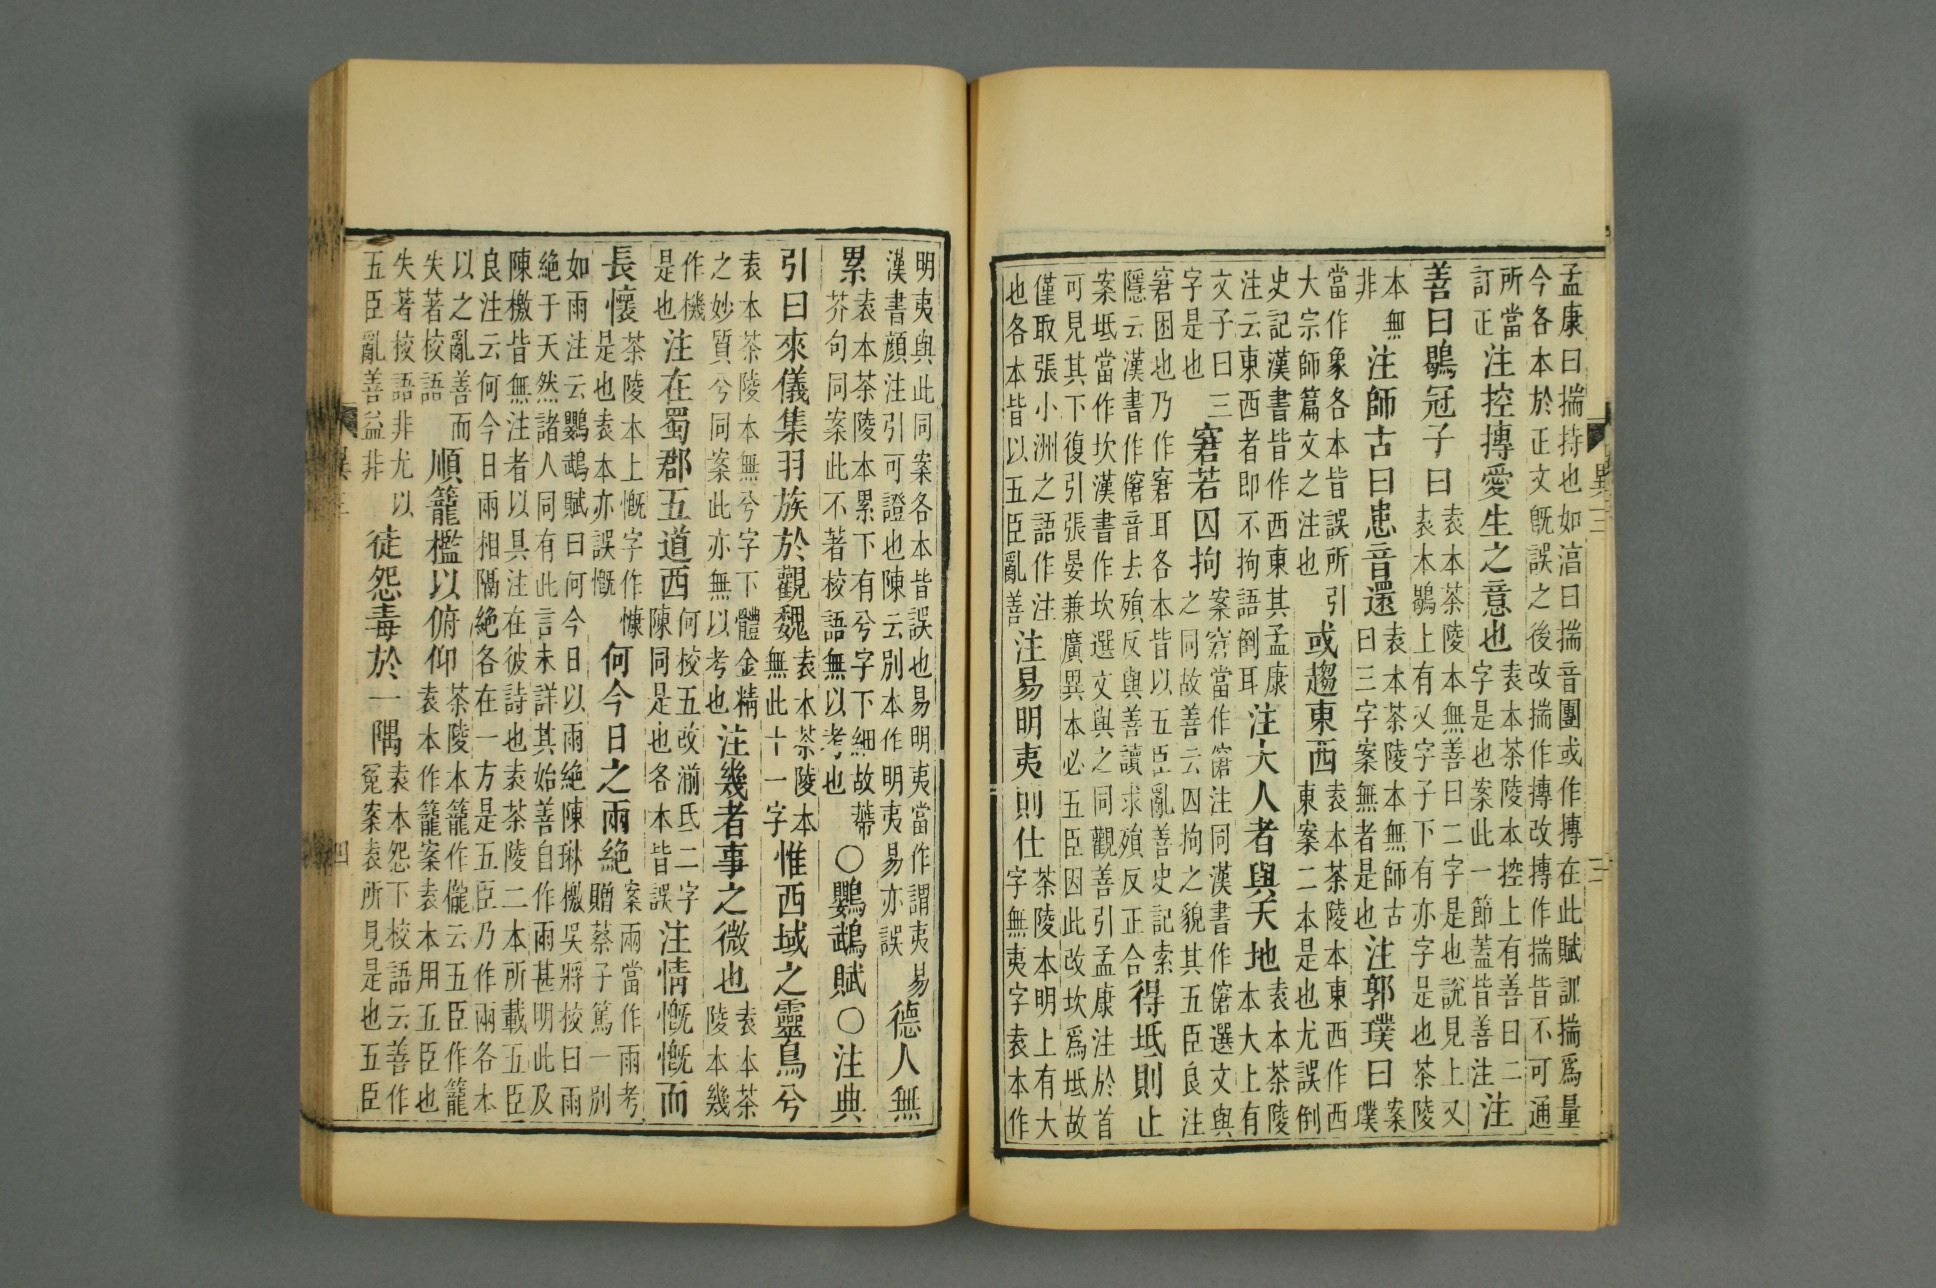 孟康曰揣持也如湻曰揣音團或作摶在此賦訓揣爲量
今各本於正文旣誤之後改揣作摶改摶作揣皆不可通
所當訂正注控摶愛生之意也袁本茶陵本控上有善曰二字是也案此一節蓋皆善注注
善曰鶡冠子曰袁本茶陵本無善曰二字是也說見上又袁本鶡上有又字子下有亦字是也茶陵
本無非注師古曰患音還袁本茶陵本無師古曰三字案無者是也注郭璞曰案璞
當作象各本皆誤所引大宗師篇文之注也或趨東西袁本茶陵本東西作西東案二本是也尤誤倒
史記漢書皆作西東其孟康注云東西者即不拘語倒耳注大人者與天地袁本茶陵本大上有
文子曰三字是也窘若囚拘案窘當作僒注同漢書作僒選文與之同故善云囚拘之貌其五臣良注
窘困也乃作窘耳各本皆以五臣亂善史記索隱云漢書作僒音去殞反與善讀求殞反正合得坻則止
案坻當作坎漢書作坎選文與之同觀善引孟康注於首
可見其下復引張晏兼廣異本必五臣因此改坎爲坻故
僅取張小洲之語作注也各本皆以五臣亂善注易明夷則仕茶陵本明上有大字無夷字袁本作
明夷與此同案各本皆誤也易明夷當作謂夷易漢書顔注引可證也陳云別本作明夷易亦誤德人無
累袁本茶陵本累下有兮字下細故蔕芥句同案此不著校語無以考也○鸚鵡賦○注典
引曰來儀集羽族於觀魏袁本茶陵本無此十一字惟西域之靈鳥兮
袁本茶陵本無兮字下體金精之妙質兮同案此亦無以考也注幾者事之微也袁本茶陵本幾
作機是也注在蜀郡五道西何校五改湔氐二字陳同是也各本皆誤注情慨慨而
長懷茶陵本上慨字作慷是也袁本亦誤慨何今日之兩絶案兩當作雨考贈蔡子篤一別
如雨注云鸚鵡賦曰何今日以雨絶陳琳檄吳將校曰雨
絶于天然諸人同有此言未詳其始善自作雨甚明此及
陳檄皆無注者以具注在彼詩也袁茶陵二本所載五臣
良注云何今日兩相隔絶各在一方是五臣乃作兩各本
以之亂善而失著校語順籠檻以俯仰茶陵本籠作儱云五臣作籠袁本作籠案袁本用五臣也
失著挍語非尤以五臣亂善益非徒怨毒於一隅袁本怨下校語云善作冤案袁所見是也五臣